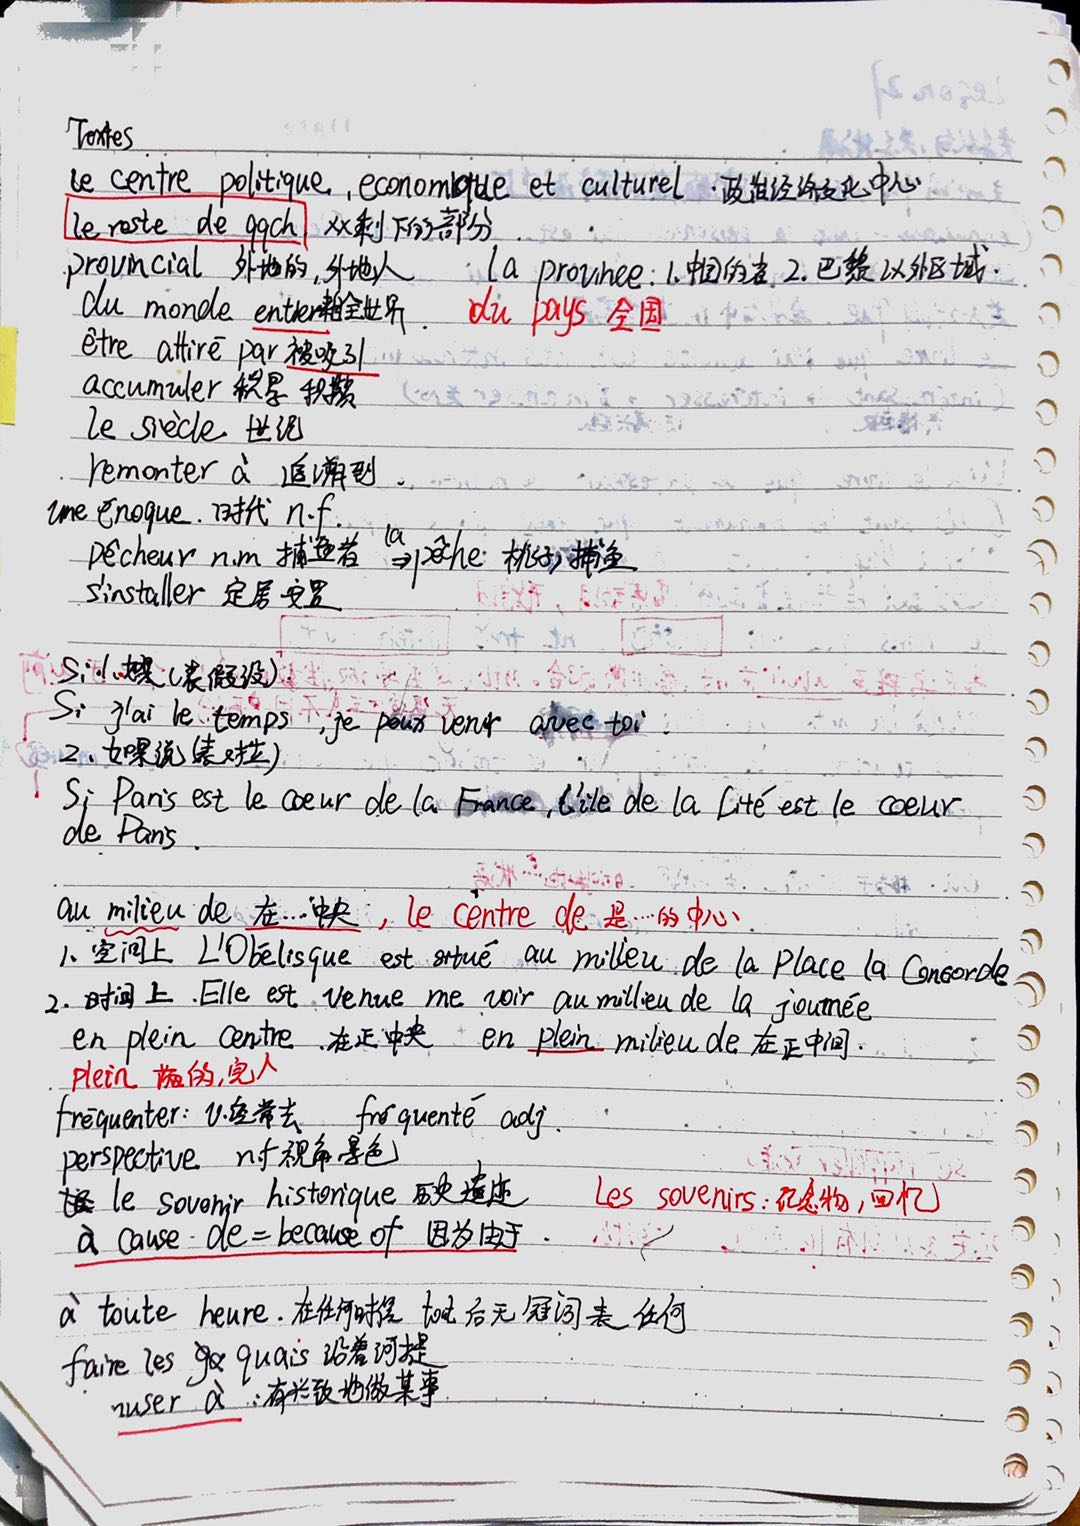 Textes
le centre politique, economique et culturel . 政治经济文化中心
le reste de qqch xx剩下的部分
provincial 外地的,外地人 la province: 1.中国的省 2.巴黎以外区域.
du monde entier 全世界. du pays 全国
être attiré par 被吸引
accumuler 积累 积攒
le siècle 世纪
remonter à 追溯到.
une époque. 时代 n.f.
pêcheur n.m 捕鱼者 ⇒ la pêche: 桃子, 捕鱼
s'installer 定居 安置
Si: 1.如果(表假设)
Si j'ai le temps, je peux venir avec toi.
2、如果说(表对立)
Si Paris est le coeur de la France, L'île de la Cité est le coeur
de Paris.
au milieu de 在…中央, le centre de 是…的中心
1、空间上 L'Obélisque est situé au milieu de la Place la Concorde
2. 时间上. Elle est venue me voir au millieu de la journée
en plein centre .在正中央 en plein milieu de 在正中间.
plein 满的,完人
fréquenter: v.经常去 fréquenté adj.
perspective n.f 视角 景色
le sovenir historique 历史遗迹 Les sovenirs: 纪念物, 回忆
à cause de = because of 因为由于.
à toute heure. 在任何时候 tout后无冠词表任何
faire les quais 沿着河堤
muser à :有兴致地做某事